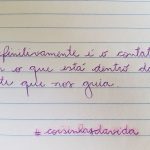 finitivamente é o contat
o que está dentro de
que nos guia.
#coisinhasdavida